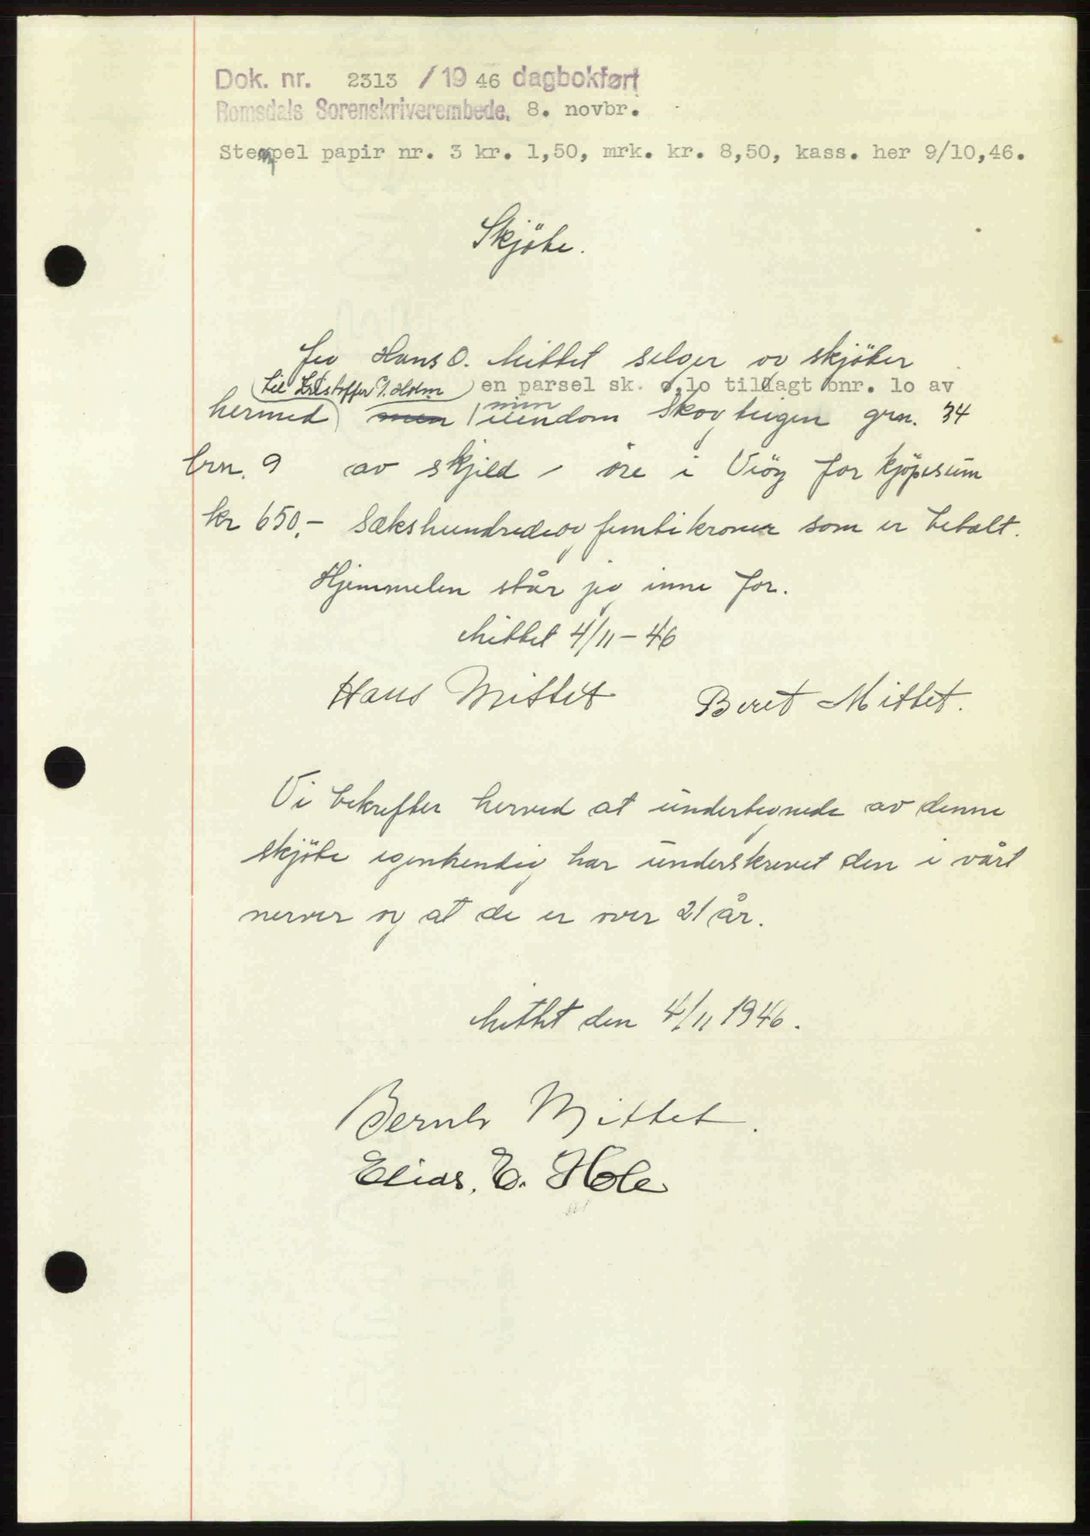 Dok. nr. 2313 / 19 46 dagbokført
Romsdals Sorenskriverembede, 8. novbr.
Stempel papir nr. 3 kr. 1,50, mrk. kr. 8,50, kass. her 9/10,46.
Skjöte.
Jeg Hans O. Mittet selger og skjöter
(til Kristoffer P. Holm) en parsel sk. ø,lo tillagt bnr. lo av
hermed men min eiendom Skogteigen grn. 34
brn. 9 av skjeld - öre i Viöy for kjöpesum
kr 650,- Sekshundredeog femtikroner som er betalt.
Hjemmelen står jeg inne for.
Mittet 4/11-46
Hans Mittet Beret Mittet.
Vi bekrefter herved at undertegnede av denne
skjöte egenhendig har underskrevet den i vårt
nerver og at de er over 21 år.
Mittet den 4/11 1946.
Bernh Mittet.
Elias. E. Hole